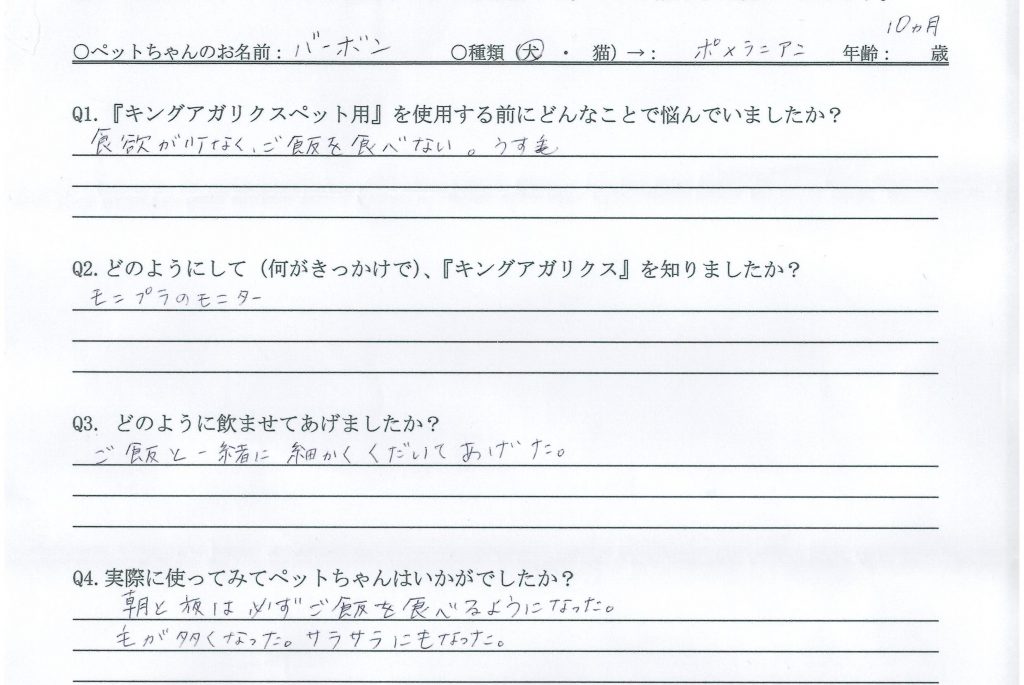 10ヵ月
○ペットちゃんのお名前：バーボン ○種類（犬・ 猫）→： ポメラニアン 年齢： 歳
Q1.『キングアガリクスペット用』を使用する前にどんなことで悩んでいましたか？
食欲が少なく、ご飯を食べない。うす毛
Q2.どのようにして（何がきっかけで）、『キングアガリクス』を知りましたか？
モニプラのモニター
Q3. どのように飲ませてあげましたか？
ご飯と一緒に細かくくだいてあげた。
Q4.実際に使ってみてペットちゃんはいかがでしたか？
朝と夜は必ずご飯を食べるようになった。
毛が多くなった。サラサラにもなった。